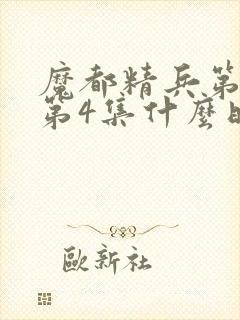 魔都精兵第
第4集什麼時
歐新社